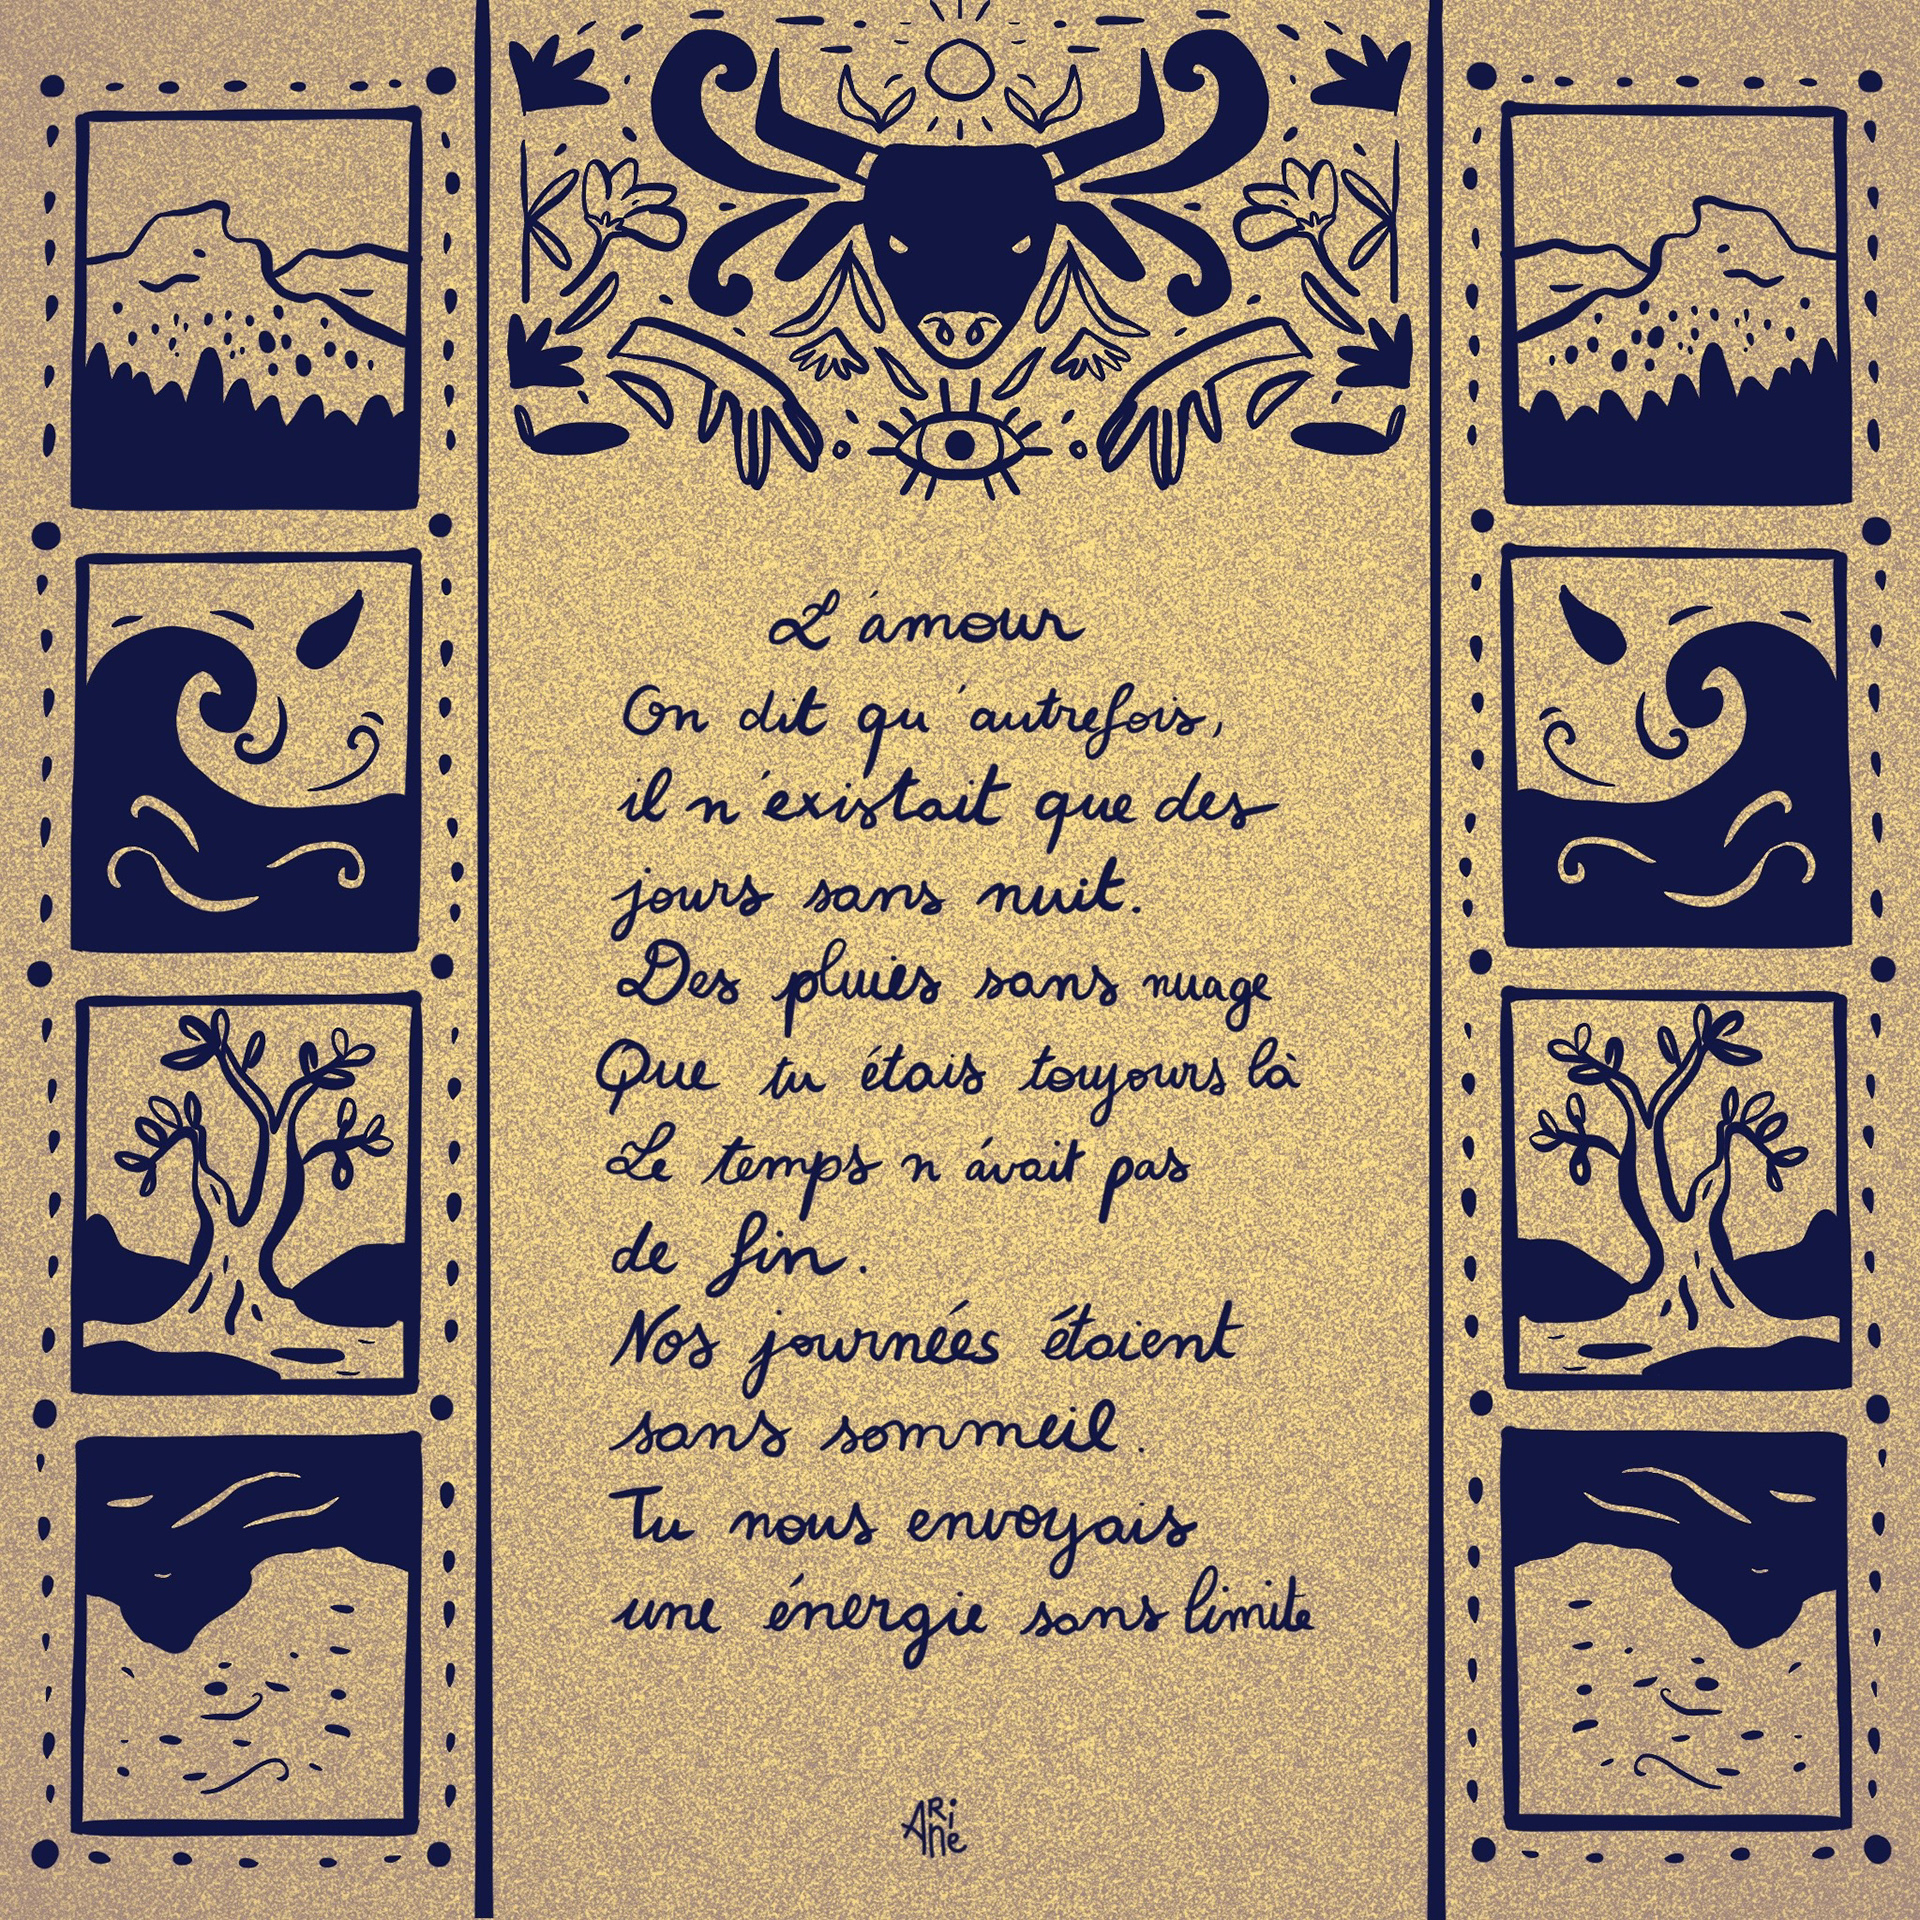 L'amour
On dit qu'autrefois,
il n'existait que des
jours sans nuit.
Des pluies sans nuage
Que tu étais toujours là
Le temps n'avait pas
de fin.
Nos journées étaient
sans sommeil.
Tu nous envoyais
une énergie sans limite
ARiNe